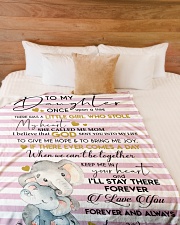 TO MY
Daughter
ONCE upon a time
THERE WAS A LITTLE GIRL WHO STOLE
My heart
SHE CALLED ME MOM
I believe that GOD SENT YOU INTO MY LIFE
TO GIVE ME HOPE & TO BRING ME JOY.
IF THERE EVER COMES A DAY
When we can't be together
KEEP ME IN
your heart
and
I'LL STAY THERE
FOREVER
I Love You
FOREVER AND ALWAYS